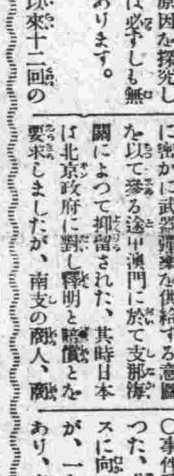 原因を探究し
は必ずしも無
あります。
以來十二回の
に密かに武器彈藥を供給する意圖
を以て參る途中澳門に於て支那海
關によつて抑留された、其時日本
は北京政府に對し釋明と賠償とを
要求しましたが、南支の商人、商
〇事件
つた、
スに向
が、一
あり、